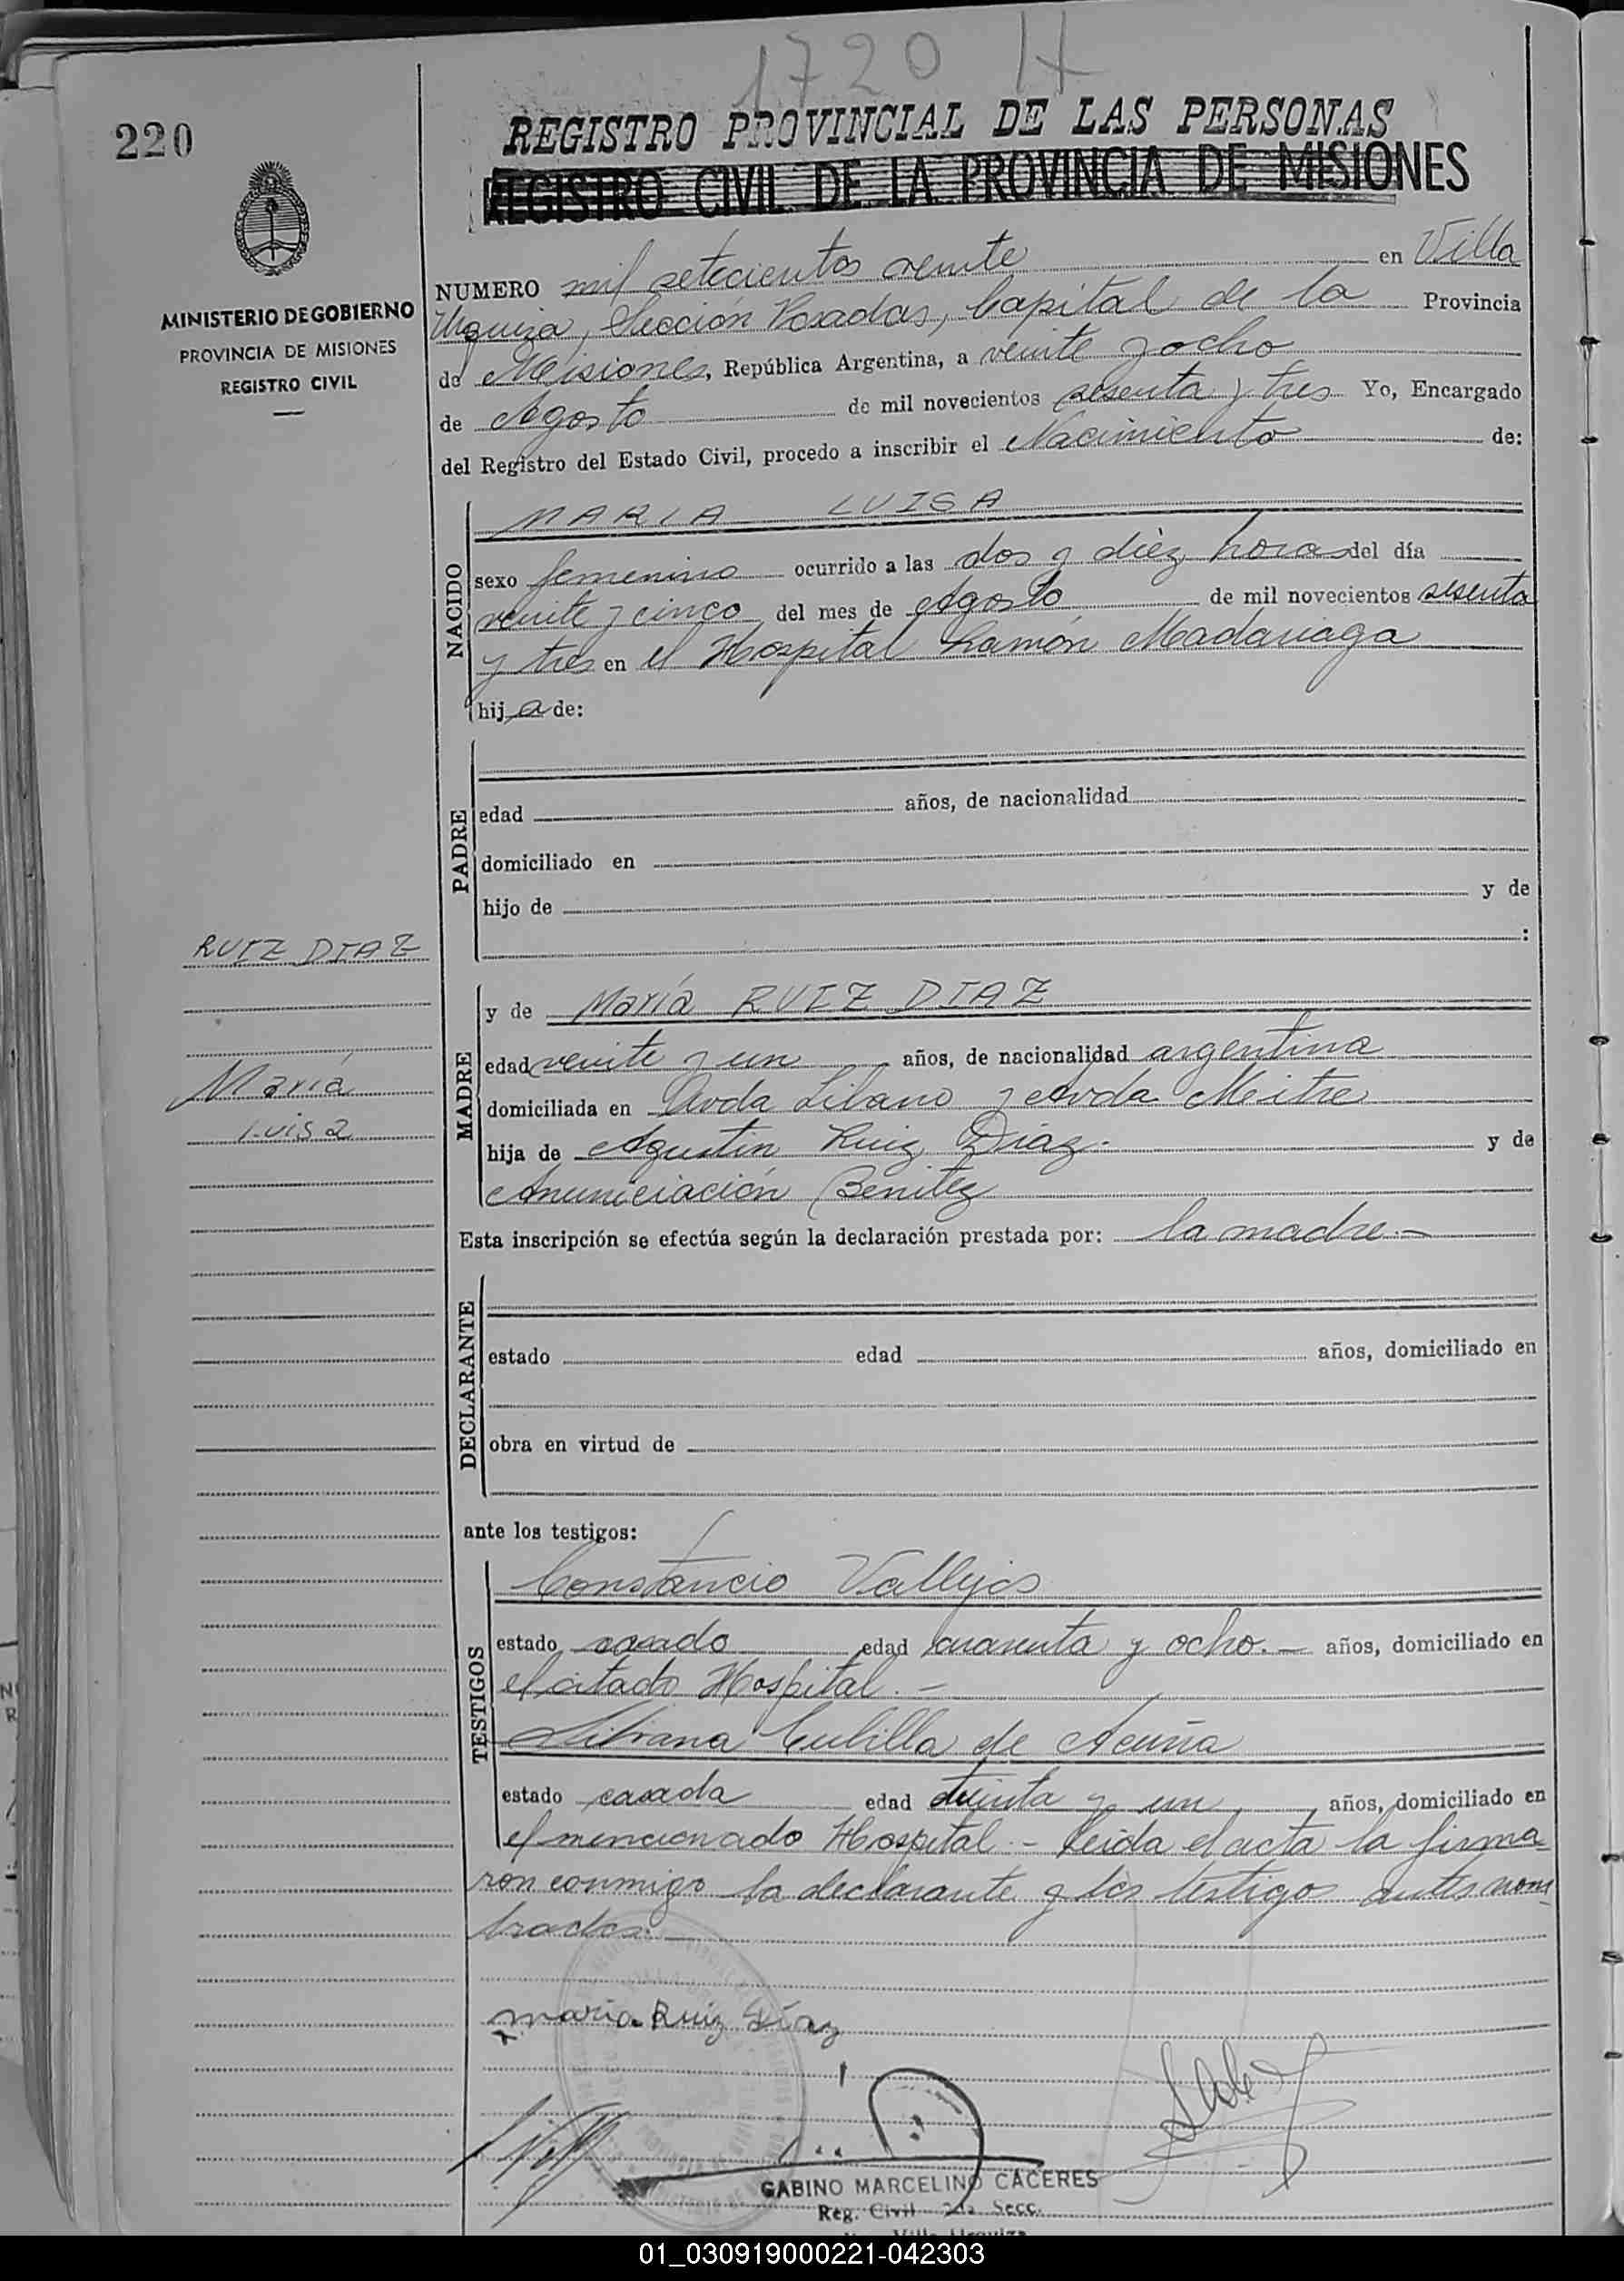 1720 H
220
REGISTRO PROVINCIAL DE LAS PERSONAS
REGISTRO CIVIL DE LA PROVINCIA DE MISIONES
MINISTERIO DE GOBIERNO
PROVINCIA DE MISIONES
REGISTRO CIVIL
NUMERO mil setecientos veinte en Villa
Urquiza, Sección Posadas, Capital de la Provincia
de Misiones, República Argentina, a veinte y ocho
de Agosto de mil novecientos sesenta y tres Yo, Encargado
del Registro del Estado Civil, procedo a inscribir el Nacimiento de:
NACIDO
MARIA LUISA
sexo femenino ocurrido a las dos y diez horas del día
veinte y cinco del mes de Agosto de mil novecientos sesenta
y tres en el Hospital Ramón Madariaga
hija de:
PADRE
edad años, de nacionalidad
domiciliado en
hijo de y de
:
RUIZ DIAZ
María
Luisa
MADRE
y de María RUIZ DIAZ
edad veinte y un años, de nacionalidad argentina
domiciliada en Avda Libano y Avda Mitre
hija de Agustin Ruiz Diaz.- y de
Anunciación Benitez
Esta inscripción se efectúa según la declaración prestada por: la madre.-
DECLARANTE
estado edad años, domiciliado en
obra en virtud de
ante los testigos:
TESTIGOS
Constancio Vallejos
estado casado edad cuarenta y ocho.- años, domiciliado en
el citado Hospital.-
Cubilla de Acuña
estado casada edad treinta y un años, domiciliado en
el mencionado Hospital.- Leida el acta la firma-
ron conmigo la declarante y los testigos antes nom-
brados.-
maria Ruiz Díaz
GABINO MARCELINO CACERES
Reg. Civil 2da Secc.
Villa Urquiza
01_030919000221-042303